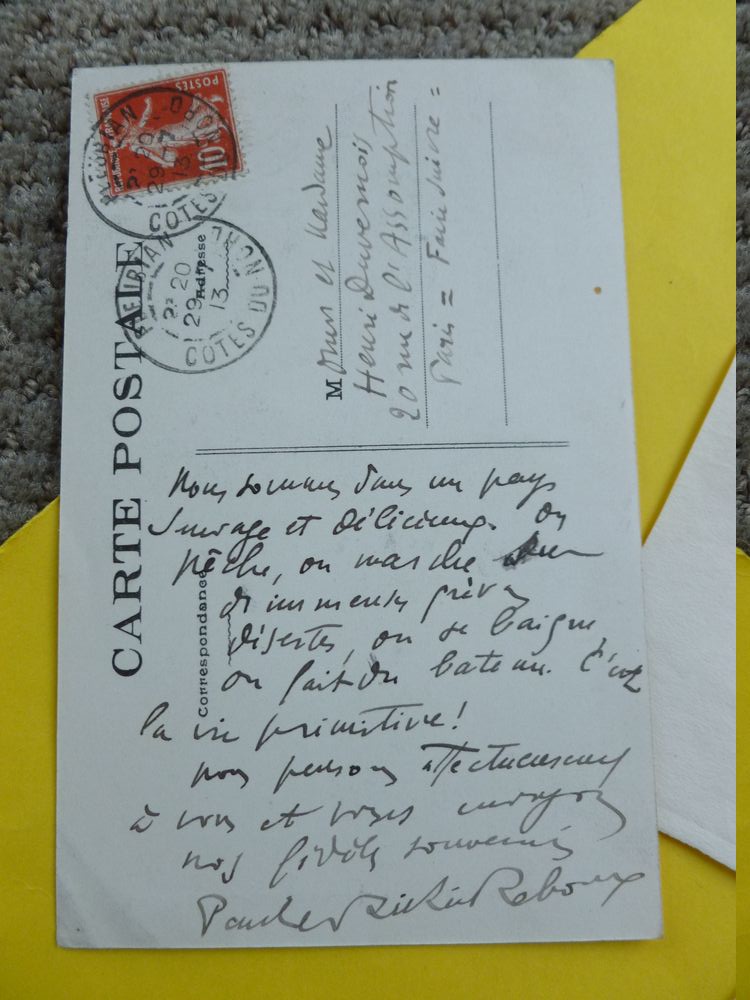 CARTE POSTALE
Correspondance
Adresse
POSTES
10
PLEUBIAN
2* 20
29 -7
13
COTES DU NORD
PLEUBIAN
2* 20
29 -7
13
COTES DU NORD
Monsieur et Madame
Henri Duvernois
20 rue de l'Assomption
Paris = Faire suivre =
Nous sommes dans un pays
sauvage et délicieux. On
pêche, on marche sur
d'immenses grèves
désertes, on se baigne,
on fait du bateau. C'est
la vie primitive!
nous pensons affectueusement
à vous et vous envoyons
nos fidèles souvenirs
Paul et Reboux